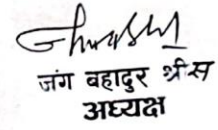 जंग बहादुर श्रीस
अध्यक्ष